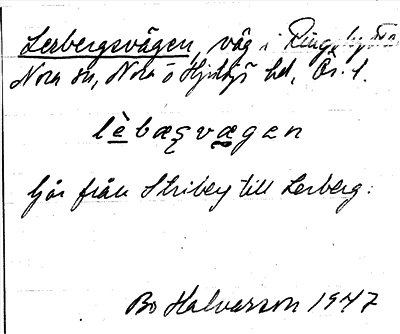 Lerbergsvägen, väg i
Nora sn, Nora o Hjulsjö hd, Ör. l.
lèbæsvægen
Går från Striberg till Lerberg.
Bo Halvarson 1947